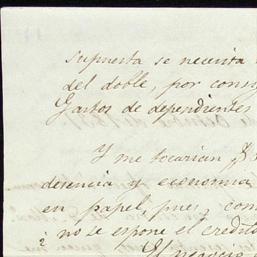 supuesta se necesita
del doble, por consi
Gastos de dependientes
Y me tocarian
desencia y economia
en papel, pues, con
no se espone el credito
El negocio